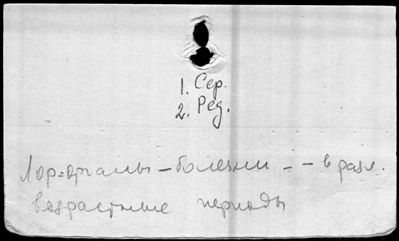 1. Сер.
2. Ред.
Лор-органы – болезни – – в разл.
возрастные периоды